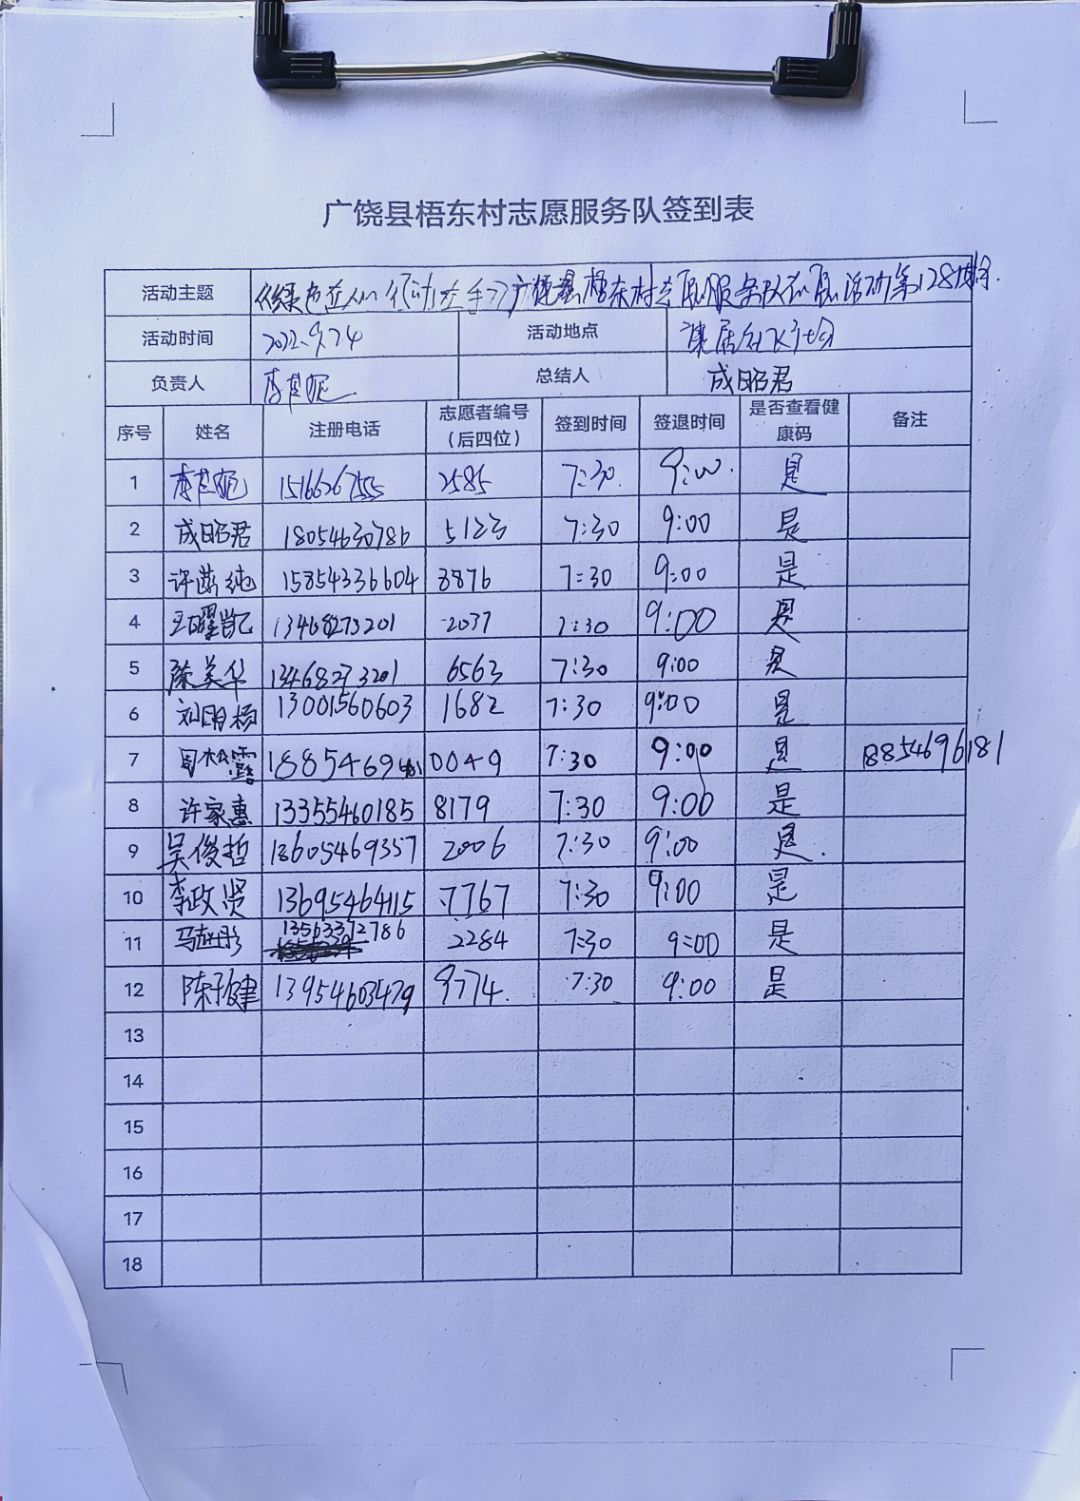 广饶县梧东村志愿服务队签到表
活动主题 广饶县梧东村志愿服务队志愿活动第128期
活动时间 2022.9.24 活动地点
负责人 总结人 成昭君
序号 姓名 注册电话 志愿者编号（后四位） 签到时间 签退时间 是否查看健康码 备注
1 2585 7:30. 9:00. 是
2 成昭君 18054630786 5123 7:30 9:00 是
3 15854336604 8876 7:30 9:00 是
4 王曜凯 13468273201 2037 7:30 9:00 是
5 陈美华 13468273201 6563 7:30 9:00 是
6 刘明杨 13001560603 1682 7:30 9:00 是
7 0049 7:30 9:00 是 18854696181
8 许家惠 13355460185 8179 7:30 9:00 是
9 吴俊哲 18605469357 2006 7:30 9:00 是.
10 李政贤 13695464115 7767 7:30 9:00 是
11 13563372786 2284 7:30 9:00 是
12 陈子健 13954603479 9774. 7:30 9:00 是
13
14
15
16
17
18